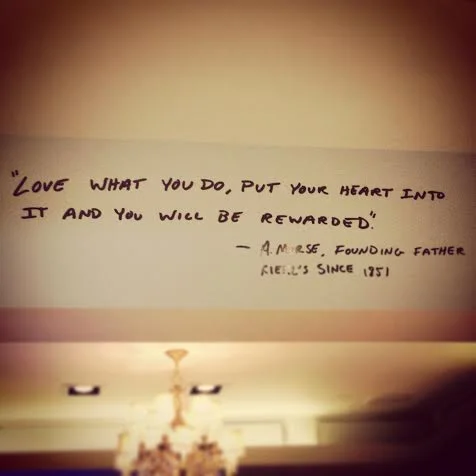 "LOVE WHAT YOU DO, PUT YOUR HEART INTO
IT AND YOU WILL BE REWARDED."
— A. MORSE, FOUNDING FATHER
KIEHL'S SINCE 1851